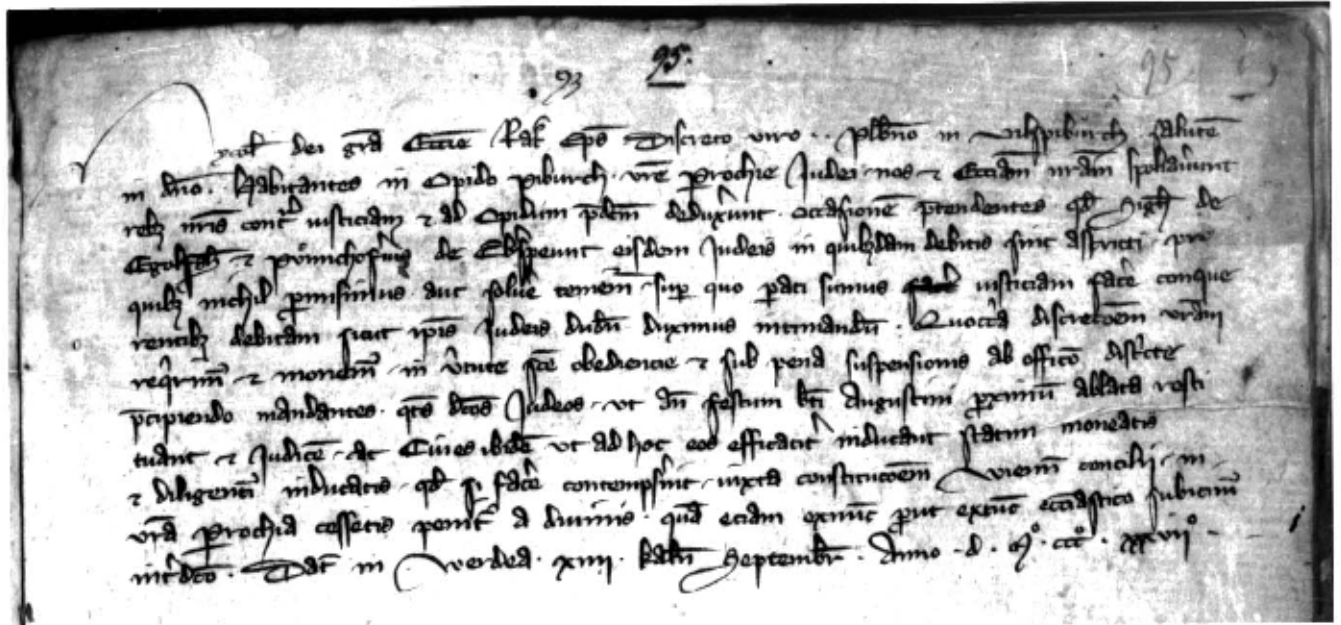 95.
93
95
dei gr̄a Ecc̄ie Rat̄ Ep̄s Discreto viro . . pleb̄no in vilspiburch salutē
in dn̄o . Habitantes in Opido piburch . vr̄e p̄rochie Judei . nos ⁊ Ecc̄iam nr̄am spoliaver̄unt
reb₃ nr̄is cont̄ iusticiam ⁊ ad Opidum p̄dc̄m dedux̄unt . occasionē p̄tendentes . qd̄ de
⁊ de eisdem Judeis in quib₃dam debitis sint astricti . pro
quib₃ nichil p̄misimus aut solūe tenem̄ . sup̄ quo p̄ati sumus iusticiam fac̄e conque
rentib₃ debitam sicut ip̄is Judeis dudū duximus intimandū . Quocc̄a discrec̄oem vr̄am
req̄rim̄ ⁊ monem̄ . in v̄tute sc̄e obediencie ⁊ sub pena suspensionis ab offic̄o dist̄cte
p̄cipiendo mandantes . q̄ts dc̄os Judeos . vt an̄ festum bt̄i Augustini p̄ximū ablata resti
tuant ⁊ Judicē . ac Ciues ibidē vt ad hoc eos efficacit̄ inducant statim moneatis
⁊ diligent̄ inducatis . qd̄ si fac̄e contemps̄int . iuxta constituc̄oem vienn̄ concilii . in .
vr̄a p̄rochia cessetis penit̄ a diuinis . quā eciam exnūc p̄ut extūc ecc̄iastico subicim̄
int̄dc̄o . Dat̄ in Werdea . xiiii . kaln̄ Septembr̄ . Anno . d . m̊ . ccc̊ . xxxvii̊